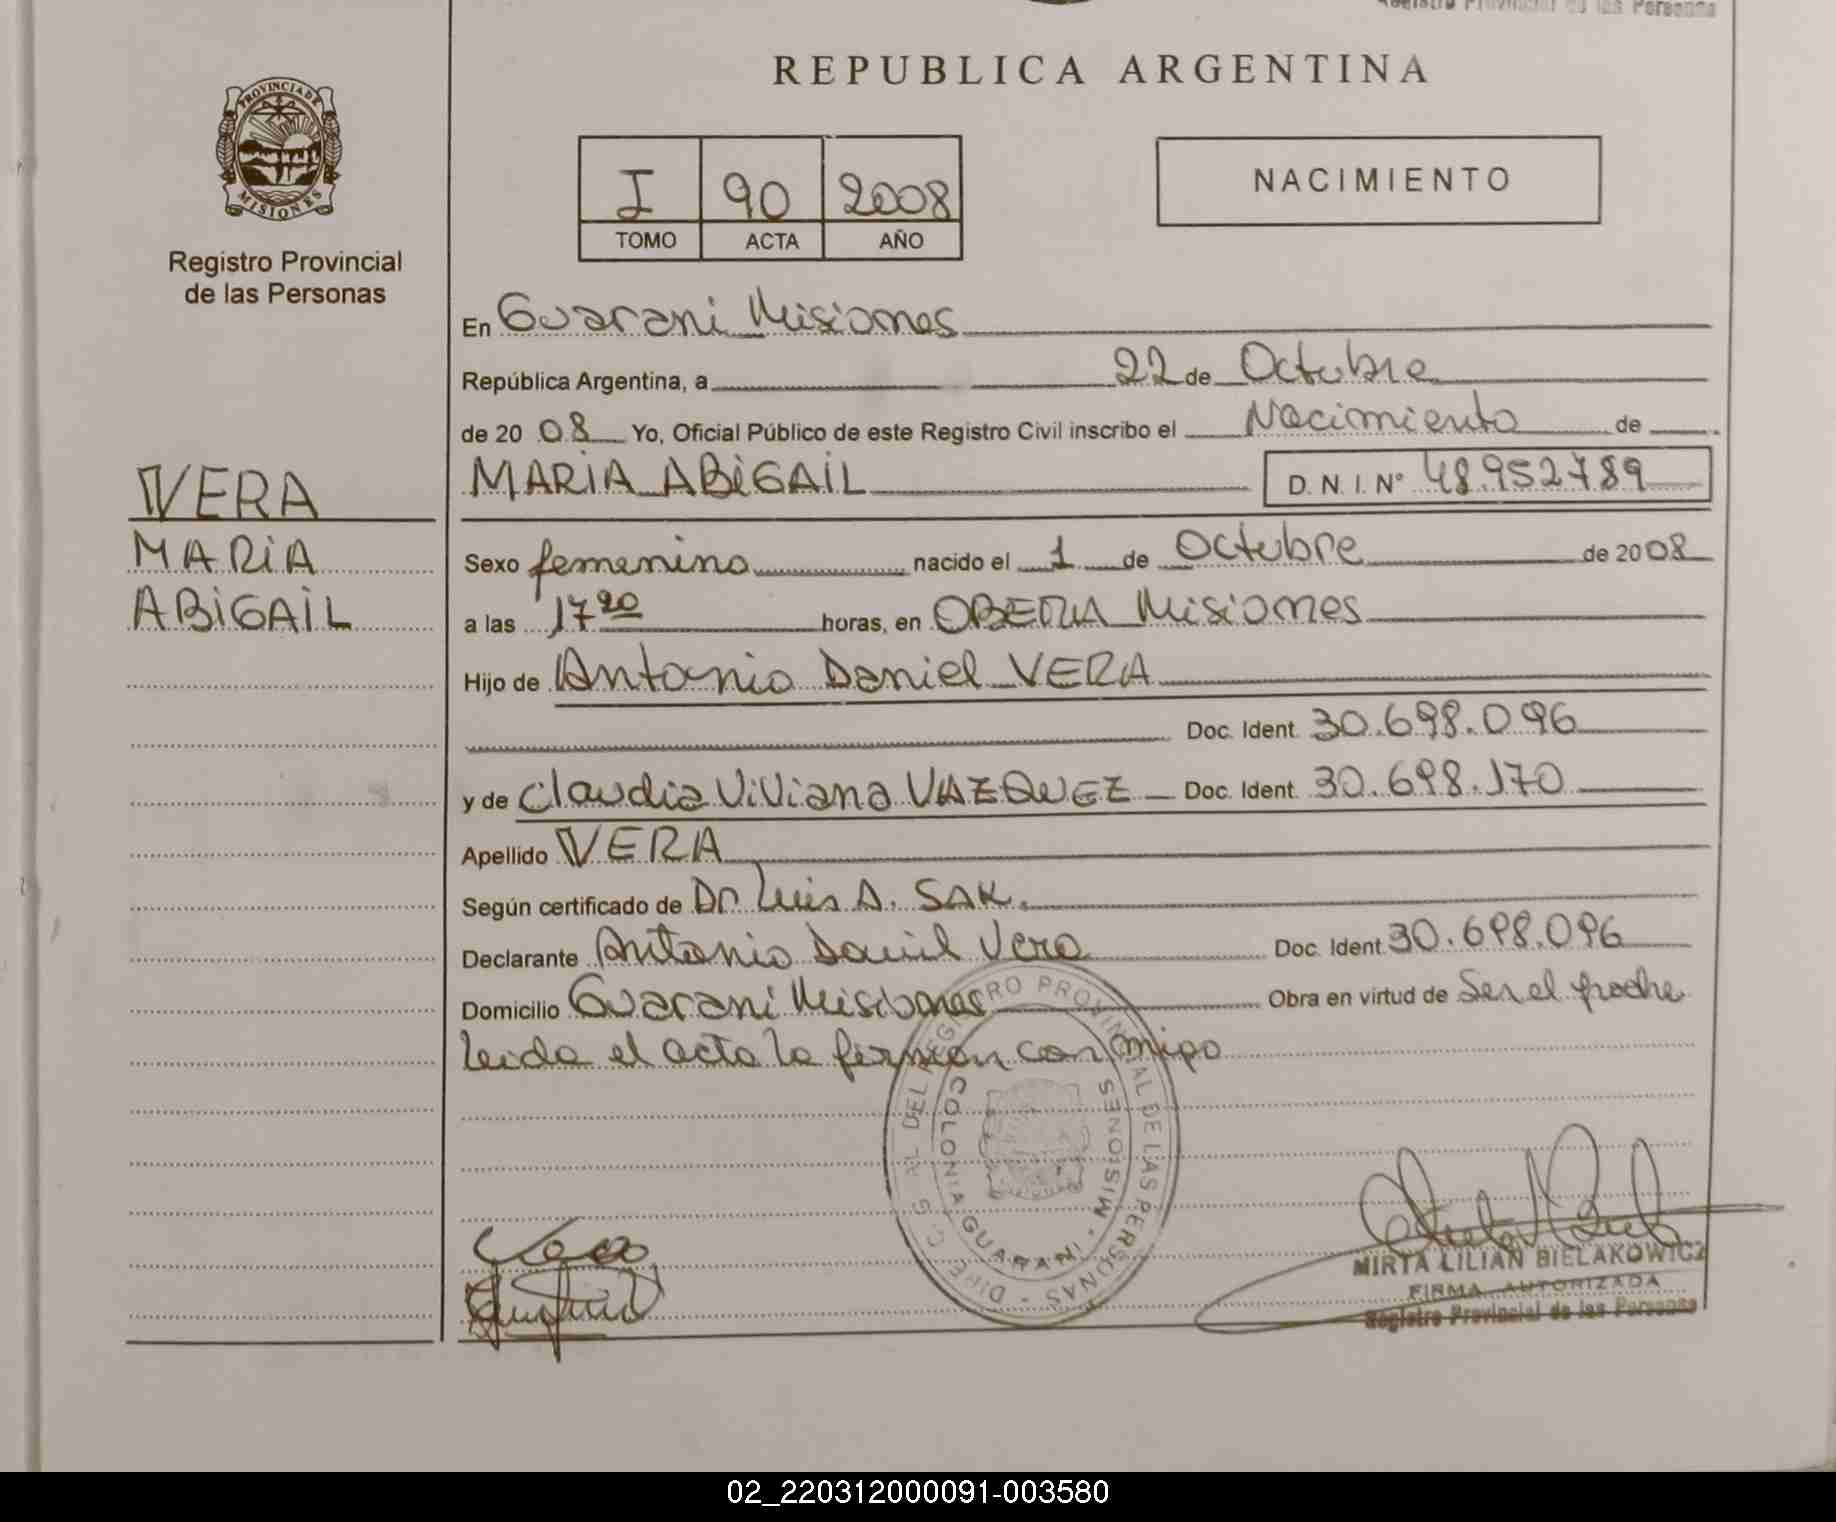 Registro Provincial de las Personas
REPUBLICA ARGENTINA
PROVINCIA DE
MISIONES
Registro Provincial
de las Personas
I 90 2008
TOMO ACTA AÑO
NACIMIENTO
En Guarani Misiones
República Argentina, a 22 de Octubre
de 20 08 Yo, Oficial Público de este Registro Civil inscribo el Nacimiento de
VERA
MARIA ABIGAIL D. N. I. N° 48.952789
MARIA
Sexo femenino nacido el 1 de Octubre de 2008
ABIGAIL
a las 17 20 horas, en OBERA Misiones
Hijo de Antonio Daniel VERA
Doc. Ident. 30.698.096
y de Claudia Viviana VAZQUEZ Doc. Ident. 30.698.170
Apellido VERA
Según certificado de Dr Luis A. SAK.
Declarante Antonio Daniel Vera Doc. Ident. 30.698.096
Domicilio Guarani Misiones Obra en virtud de Ser el padre
leida el acta la firman conmigo
REGISTRO PROVINCIAL DE LAS PERSONAS
COLONIA GUARANI - MISIONES
MIRTA LILIAN BIELAKOWICZ
FIRMA AUTORIZADA
Registro Provincial de las Personas
02_220312000091-003580